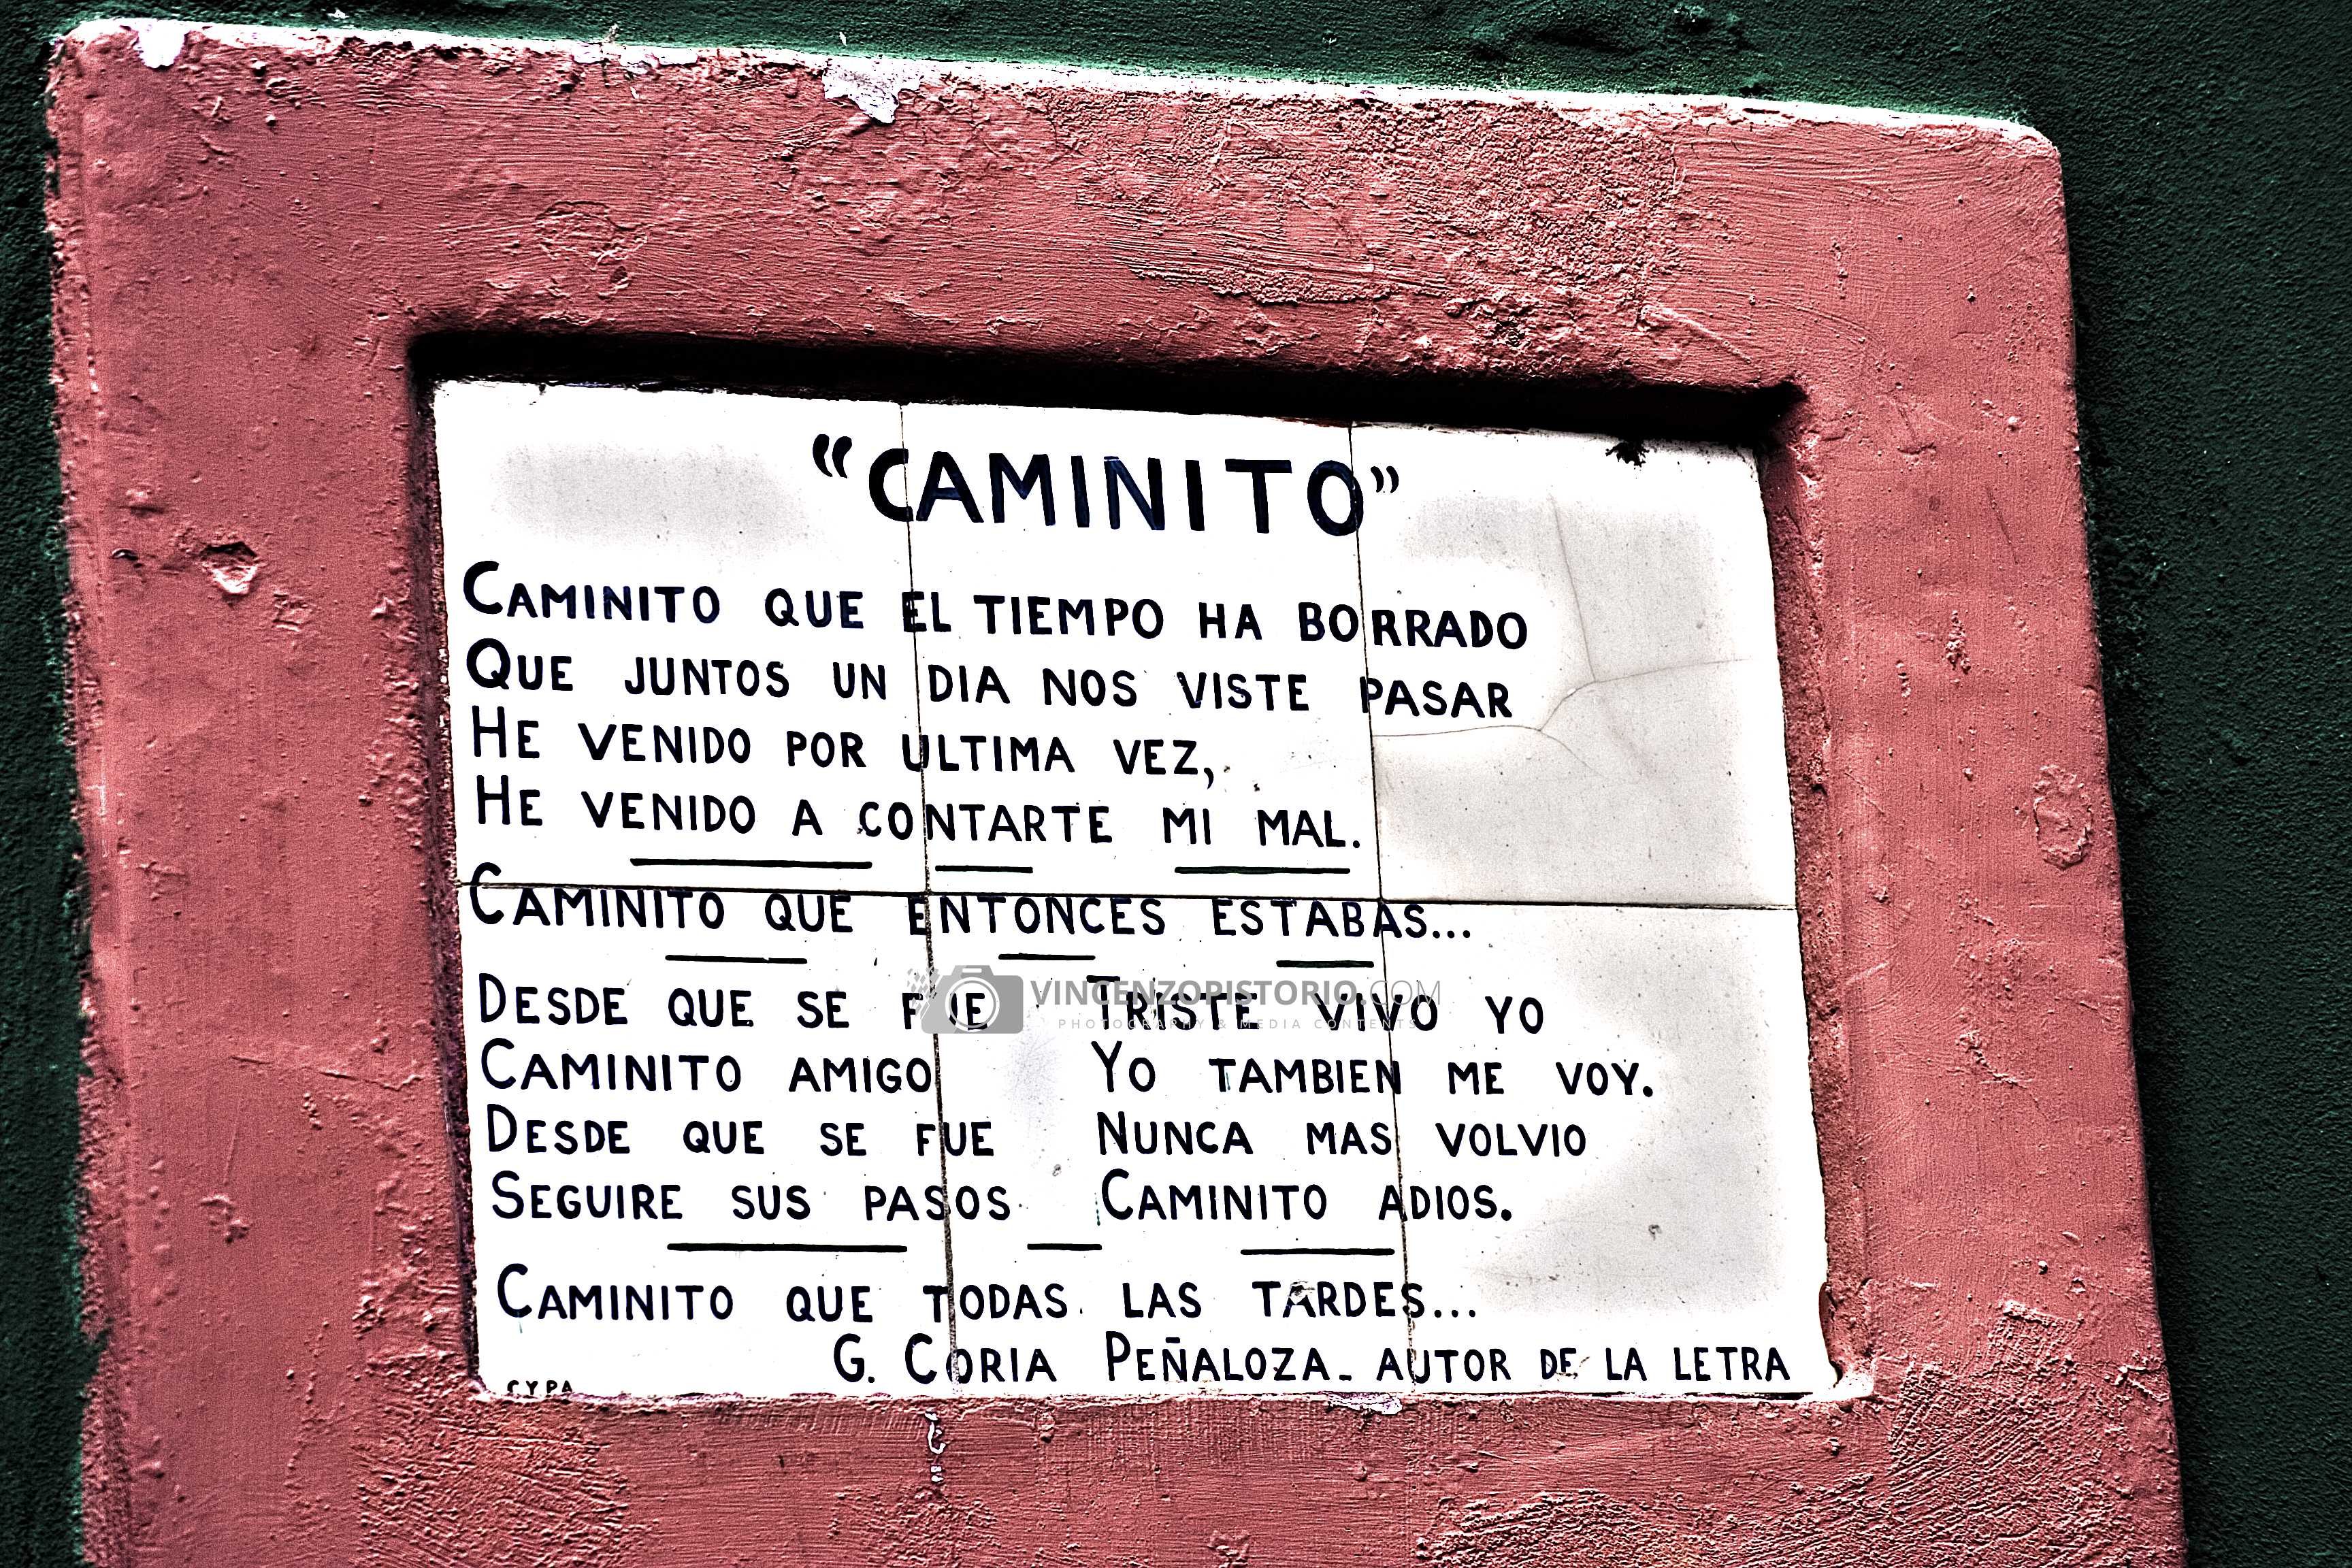 “CAMINITO”
CAMINITO QUE EL TIEMPO HA BORRADO
QUE JUNTOS UN DIA NOS VISTE PASAR
HE VENIDO POR ULTIMA VEZ,
HE VENIDO A CONTARTE MI MAL.
CAMINITO QUE ENTONCES ESTABAS...
DESDE QUE SE FUE
CAMINITO AMIGO
DESDE QUE SE FUE
SEGUIRE SUS PASOS
TRISTE VIVO YO
YO TAMBIEN ME VOY.
NUNCA MAS VOLVIO
CAMINITO ADIOS.
CAMINITO QUE TODAS LAS TARDES...
G. CORIA PEÑALOZA_ AUTOR DE LA LETRA
CYPA
VINCENZOPISTORIO.COM
PHOTOGRAPHY & MEDIA CONTENTS